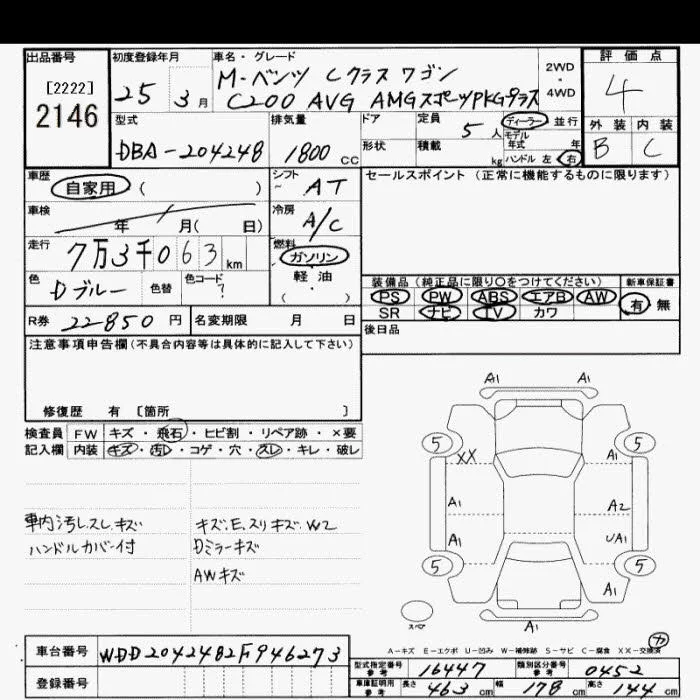 出品番号
[2222]
2146
初度登録年月
25 3月
車名・グレード
M-ベンツ Cクラス ワゴン
C200 AVG AMGスポーツPKGプラス
2WD
・
4WD
評価点
4
外装 内装
B C
型式
DBA-204248
排気量
1800 cc
ドア
定員
5人
ディーラー 並行
モデル
年式 年
形状
積載
kg
ハンドル 左 右
車歴
自家用 ( )
シフト
~ AT
セールスポイント (正常に機能するものに限ります)
車検
年 月( 日)
冷房
A/C
走行
7万3千063 km
燃料
ガソリン
軽油
( ・ )
色
Dブルー
色替
色コード
?
装備品 (純正品に限り○をつけてください)
新車保証書
PS PW ABS エアB AW
有 無
SR ナビ TV カワ
R券 22-850 円
名変期限 月 日
後日品
注意事項申告欄(不具合内容等は具体的に記入して下さい)
修復歴 有 [箇所 ]
検査員
記入欄
FW キズ・飛石・ヒビ割・リペア跡・×要
内装 キズ・汚レ・コゲ・穴・スレ・キレ・破レ
A1 A1
5 5
XX A1
A1 A2
A1 UA1
5 5
A1
A1
スペア
車内汚レ.スレ.キズ
ハンドルカバー付
キズ.E.スリキズ.W2
Dミラーキズ
AWキズ
A-キズ E-エクボ U-凹み W-補修跡 S-サビ C-腐食 XX-交換済
車台番号 WDD2042482F946273
登録番号
型式指定番号
参考
16447
類別区分番号
参考
0452
車庫証明用
参考
長さ 463 cm 幅 178 cm 高さ 144 cm